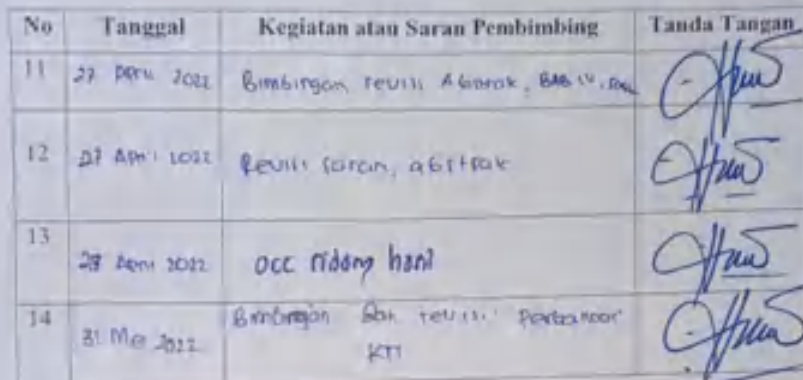 No Tanggal Kegiatan atau Saran Pembimbing Tanda Tangan
11 27 April 2022 Bimbingan revisi Abstrak, BAB IV,
12 27 April 2022 Revisi saran, abstrak
13 28 April 2022 acc sidang hasil
14 31 Mei 2022 Bimbingan dan revisi Perbaikan
KTI